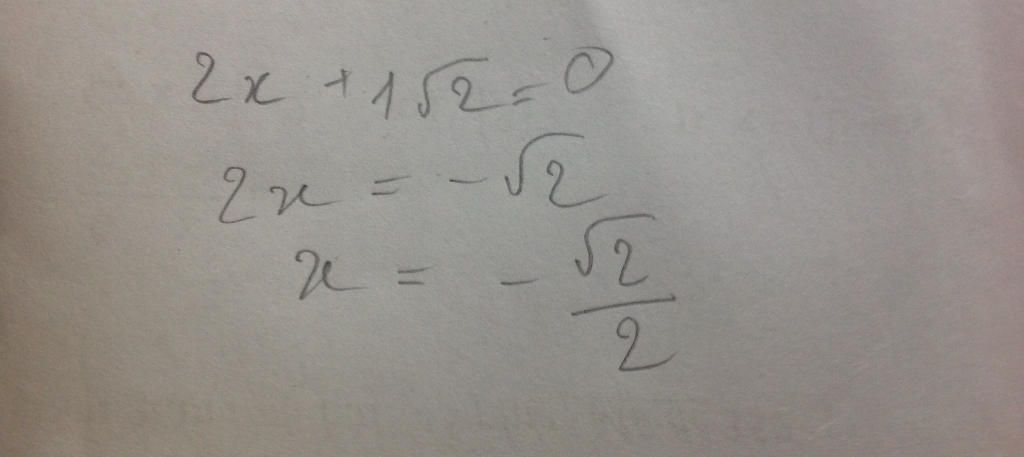 2x + 1√2 = 0
2x = -√2
x = - √2/2